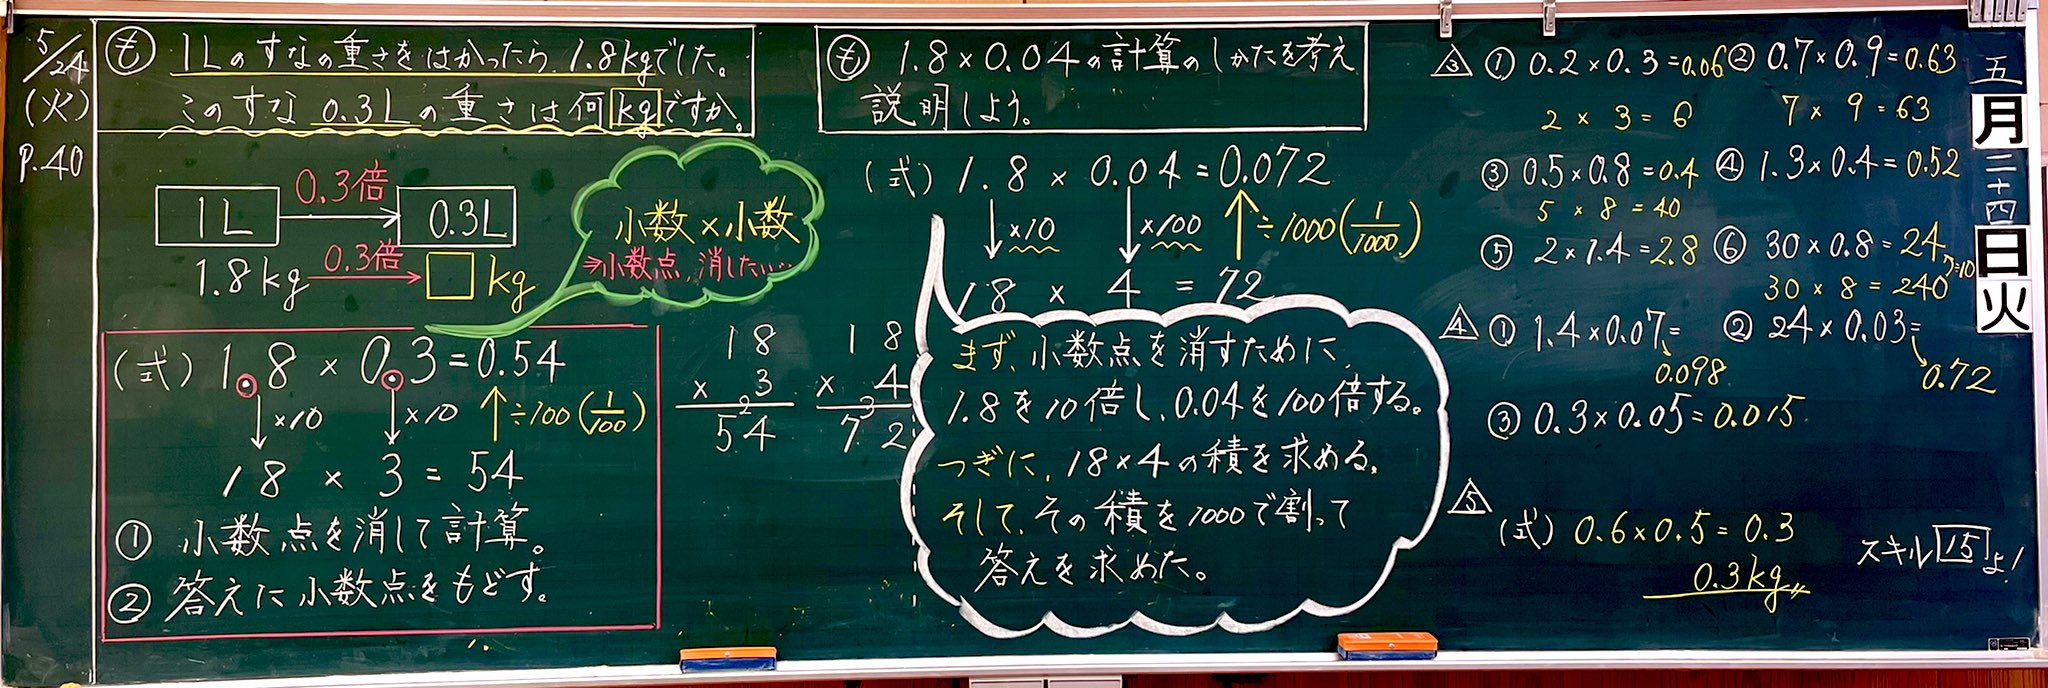 5/24
(火)
P.40
も 1Lのすなの重さをはかったら、1.8kgでした。
このすな0.3Lの重さは何kgですか。
1L 0.3倍 0.3L
1.8kg 0.3倍 □kg
小数×小数
⇒小数点、消したい…
(式) 1.8 × 0.3 = 0.54
×10 ×10 ÷100 (1/100)
18 × 3 = 54
① 小数点を消して計算。
② 答えに小数点をもどす。
18
× 3
2
54
18
× 4
3
72
も 1.8×0.04の計算のしかたを考え
説明しよう。
(式) 1.8 × 0.04 = 0.072
×10 ×100 ÷1000 (1/1000)
18 × 4 = 72
まず、小数点を消すために、
1.8を10倍し、0.04を100倍する。
つぎに、18×4の積を求める。
そして、その積を1000で割って
答えを求めた。
3 ① 0.2×0.3=0.06 ② 0.7×0.9=0.63
2 × 3 = 6 7 × 9 = 63
③ 0.5×0.8=0.4 ④ 1.3×0.4=0.52
5 × 8 = 40
⑤ 2×1.4=2.8 ⑥ 30×0.8=24
÷10
30 × 8 = 240
4 ① 1.4×0.07= ② 24×0.03=
0.098 0.72
③ 0.3×0.05=0.015
5
(式) 0.6×0.5=0.3
0.3kg
スキル15よ!
五月二十四日火